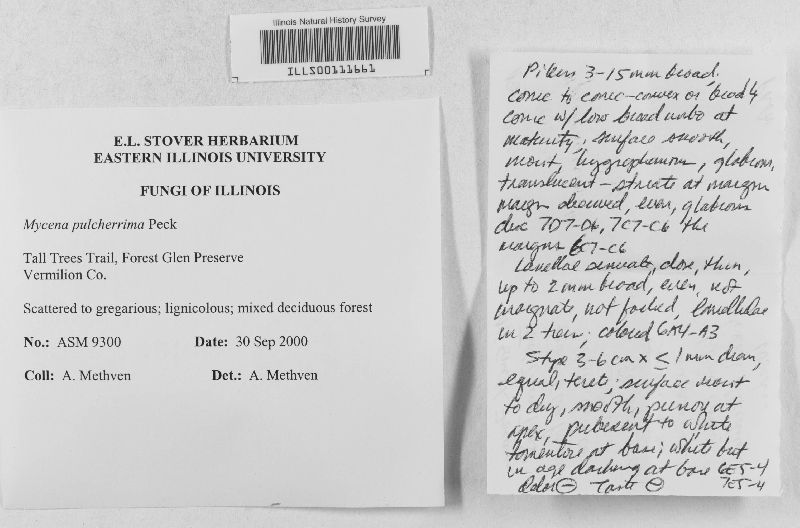 Illinois Natural History Survey
ILLS00111661
E.L. STOVER HERBARIUM
EASTERN ILLINOIS UNIVERSITY
FUNGI OF ILLINOIS
Mycena pulcherrima Peck
Tall Trees Trail, Forest Glen Preserve
Vermilion Co.
Scattered to gregarious; lignicolous; mixed deciduous forest
No.: ASM 9300 Date: 30 Sep 2000
Coll: A. Methven Det.: A. Methven
Pileus 3-15 mm broad,
conic to conic-convex or broadly
conic w/ low broad umbo at
maturity; surface smooth,
moist, hygrophanous, glabrous,
translucent-striate at margin
margin decurved, even, glabrous
disc 7D7-D6, 7C7-C6 the
margins 6C7-C6
Lamellae sinuate, close, thin,
up to 2 mm broad, even, not
marginate, not forked, lamellulae
in 2 tiers; colored 6A4-A3
Stipe 3-6 cm x ≤ 1 mm diam,
equal, terete; surface moist
to dry, smooth, pruinose at
apex, pubescent to white
tomentose at base; white but
in age darkening at base 6E5-4
Odor ⊖ Taste ⊖ 7E5-4